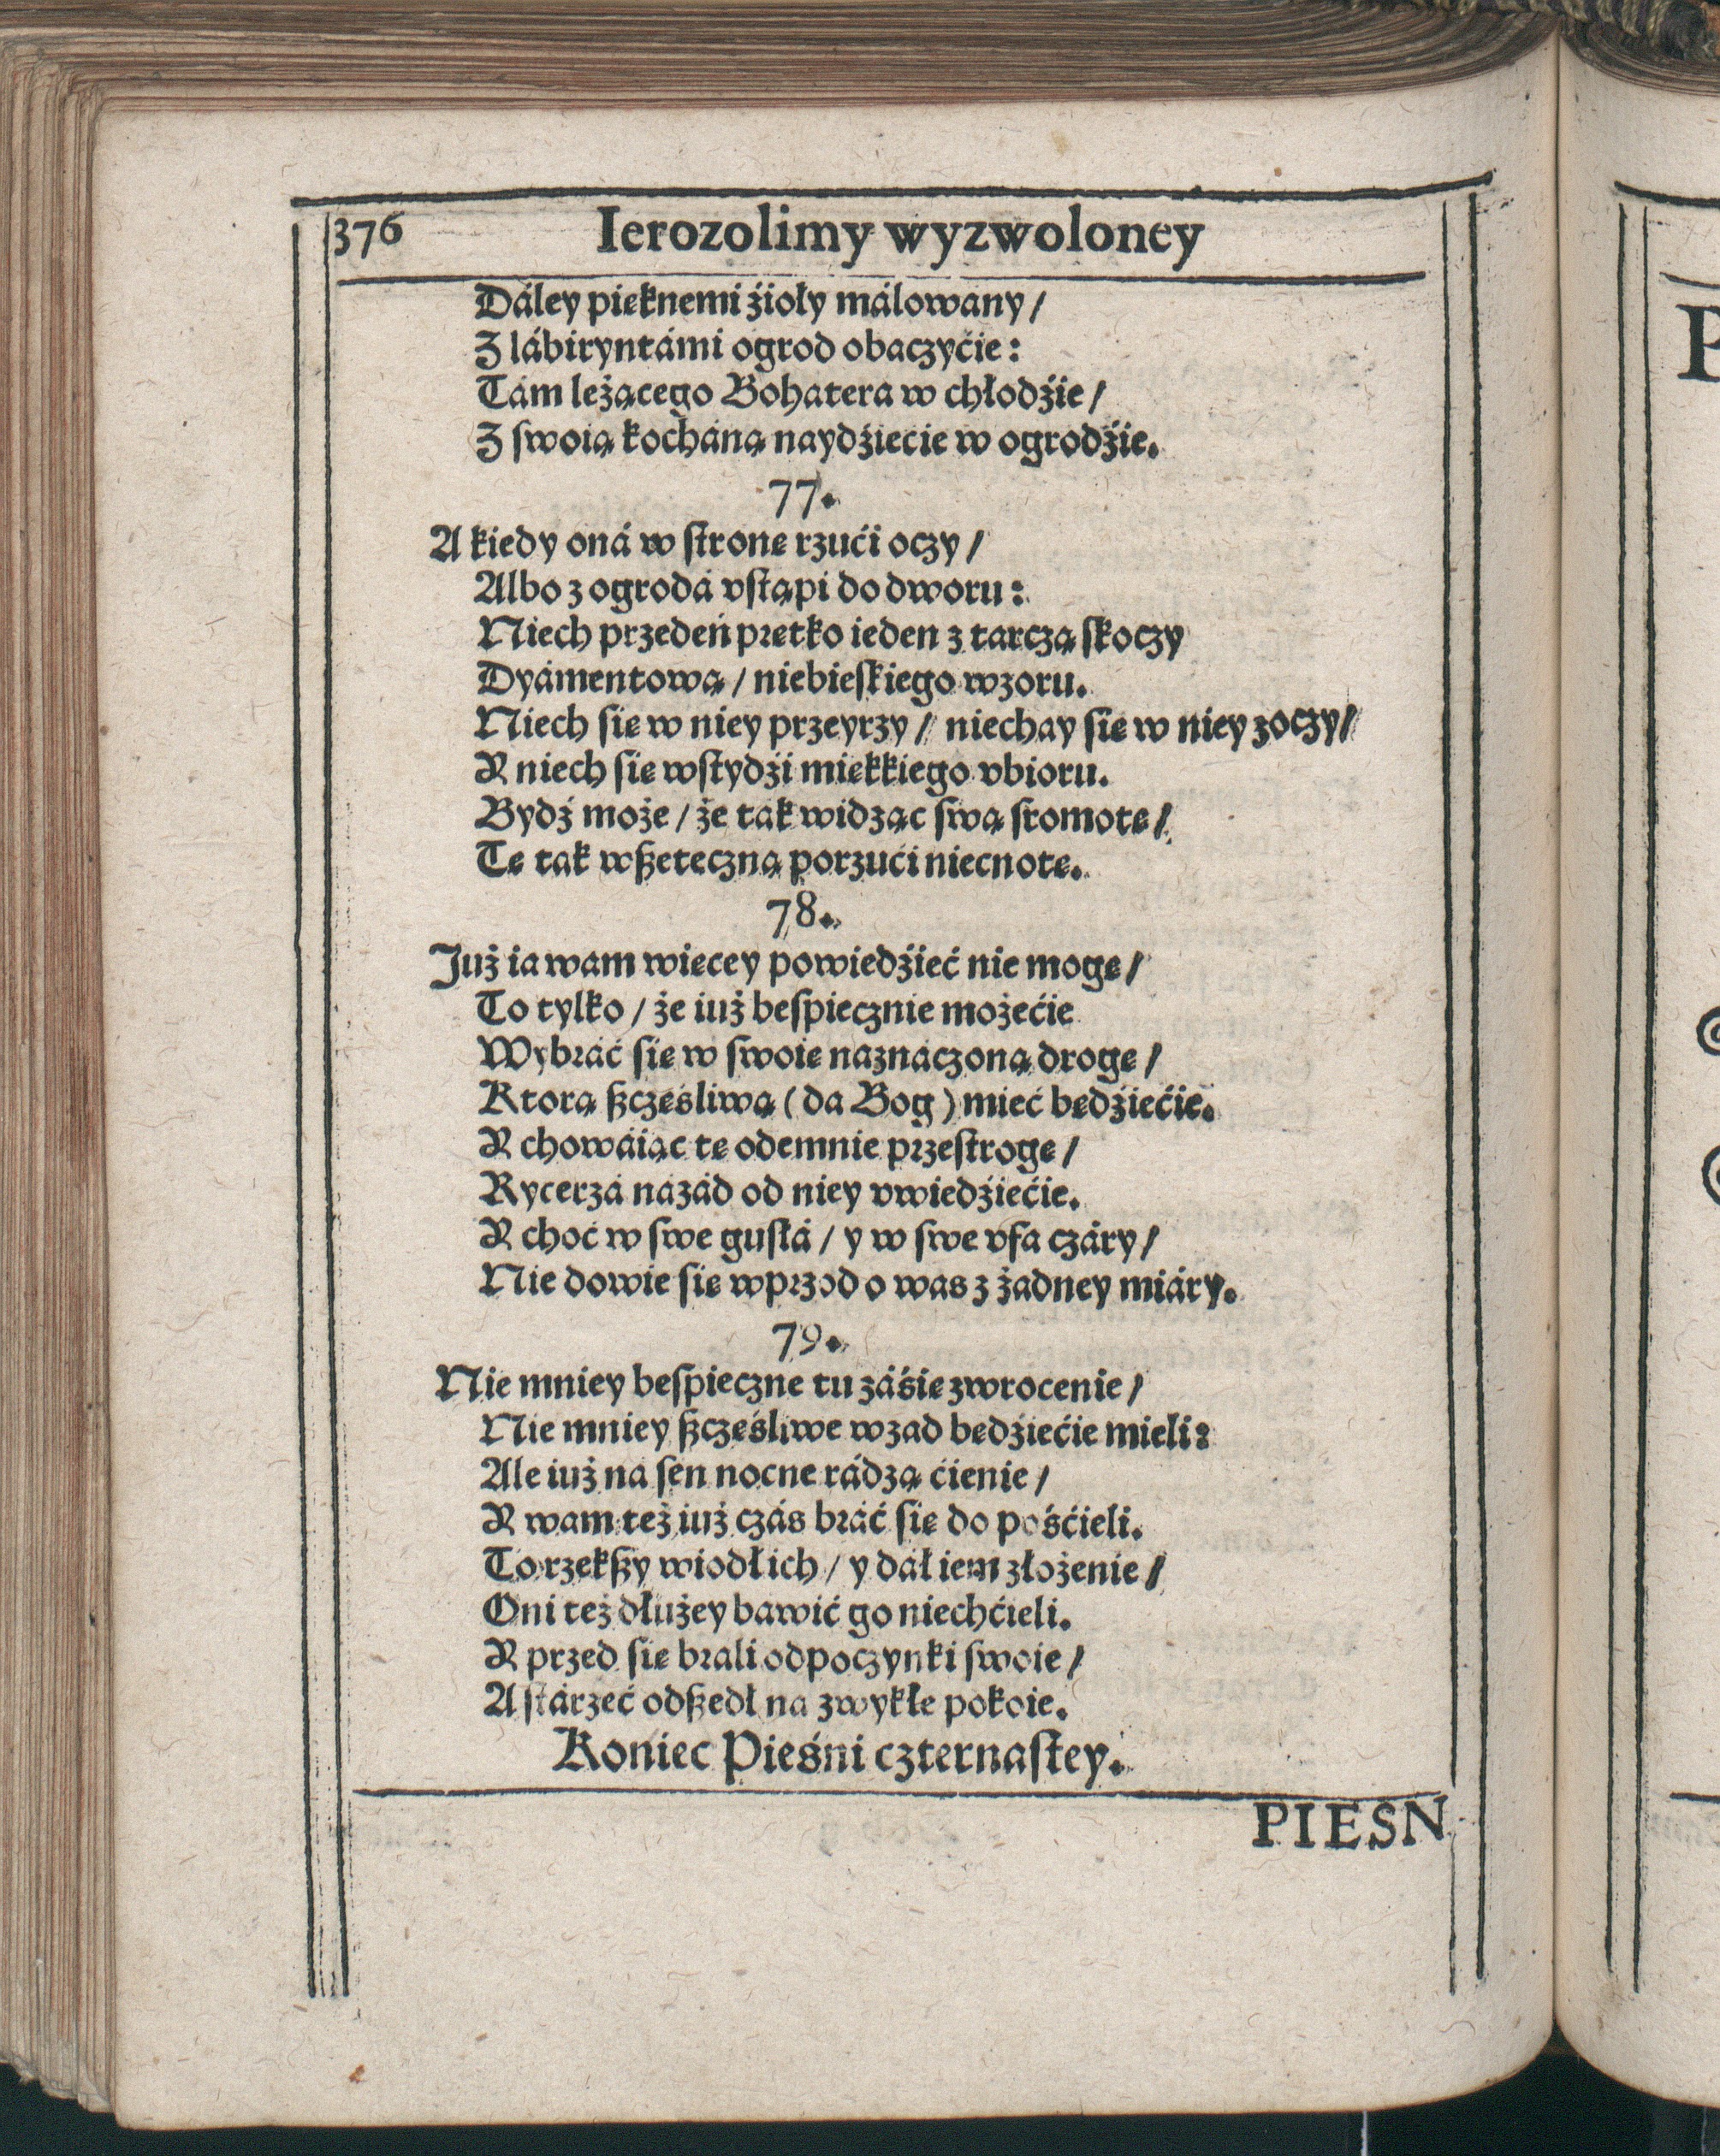 376 Ierozolimy wyzwoloney
Dáley pięknemi źioły málowany /
Z lábiryntámi ogrod obaczyćie:
Tám leżącego Bohatera w chłodźie /
Z swoią kochaną naydźiecie w ogrodźie.
77.
A kiedy oná w stronę rzući oczy /
Albo z ogrodá vstąpi do dworu:
Niech przedeń prętko ieden z tarczą skoczy
Dyámentową / niebieskiego wzoru.
Niech się w niey przeyrzy / niechay się w niey zoczy /
Y niech się wstydźi miękkiego vbioru.
Bydź może / że tak widząc swą sromotę /
Tę tak wszeteczną porzući niecnotę.
78.
Już ia wam więcey powiedźieć nie mogę /
To tylko / że iuż bespiecznie możećie
Wybráć się w swoię náznáczoną drogę /
Ktorą szczęśliwą (da Bog) mieć będźiećie.
Y chowáiąc tę odemnie przestrogę /
Rycerzá názad od niey vwiedźiećie.
Y choć w swe gusłá / y w swe vfa czáry /
Nie dowie się wprzod o was z żadney miáry.
79.
Nie mniey bespieczne tu záśię zwrocenie /
Nie mniey szczęśliwe wzad będźiećie mieli:
Ale iuż ná sen nocne rádzą ćienie /
Y wam też iuż czás bráć się do pośćieli.
To rzekszy wiodł ich / y dał iem złożenie /
Oni też dłużey bawić go niechćieli.
Y przed się brali odpoczynki swoie /
A stárzeć odszedł na zwykłe pokoie.
Koniec Pieśni czternastey.
PIESN